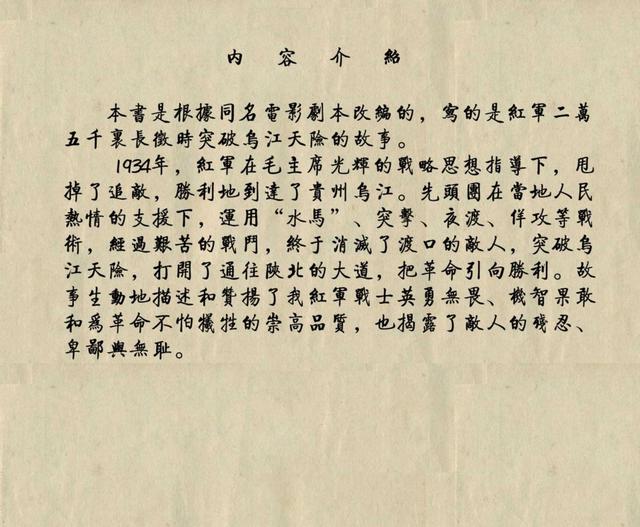 內容介紹
本書是根據同名電影劇本改編的，寫的是紅軍二萬
五千裏長徵時突破烏江天險的故事。
1934年，紅軍在毛主席光輝的戰略思想指導下，甩
掉了追敵，勝利地到達了貴州烏江。先頭團在當地人民
熱情的支援下，運用“水馬”、突擊、夜渡、佯攻等戰
術，經過艱苦的戰鬥，終于消滅了渡口的敵人，突破烏
江天險，打開了通往陝北的大道，把革命引向勝利。故
事生動地描述和贊揚了我紅軍戰士英勇無畏、機智果敢
和爲革命不怕犧牲的崇高品質，也揭露了敵人的殘忍、
卑鄙與無耻。